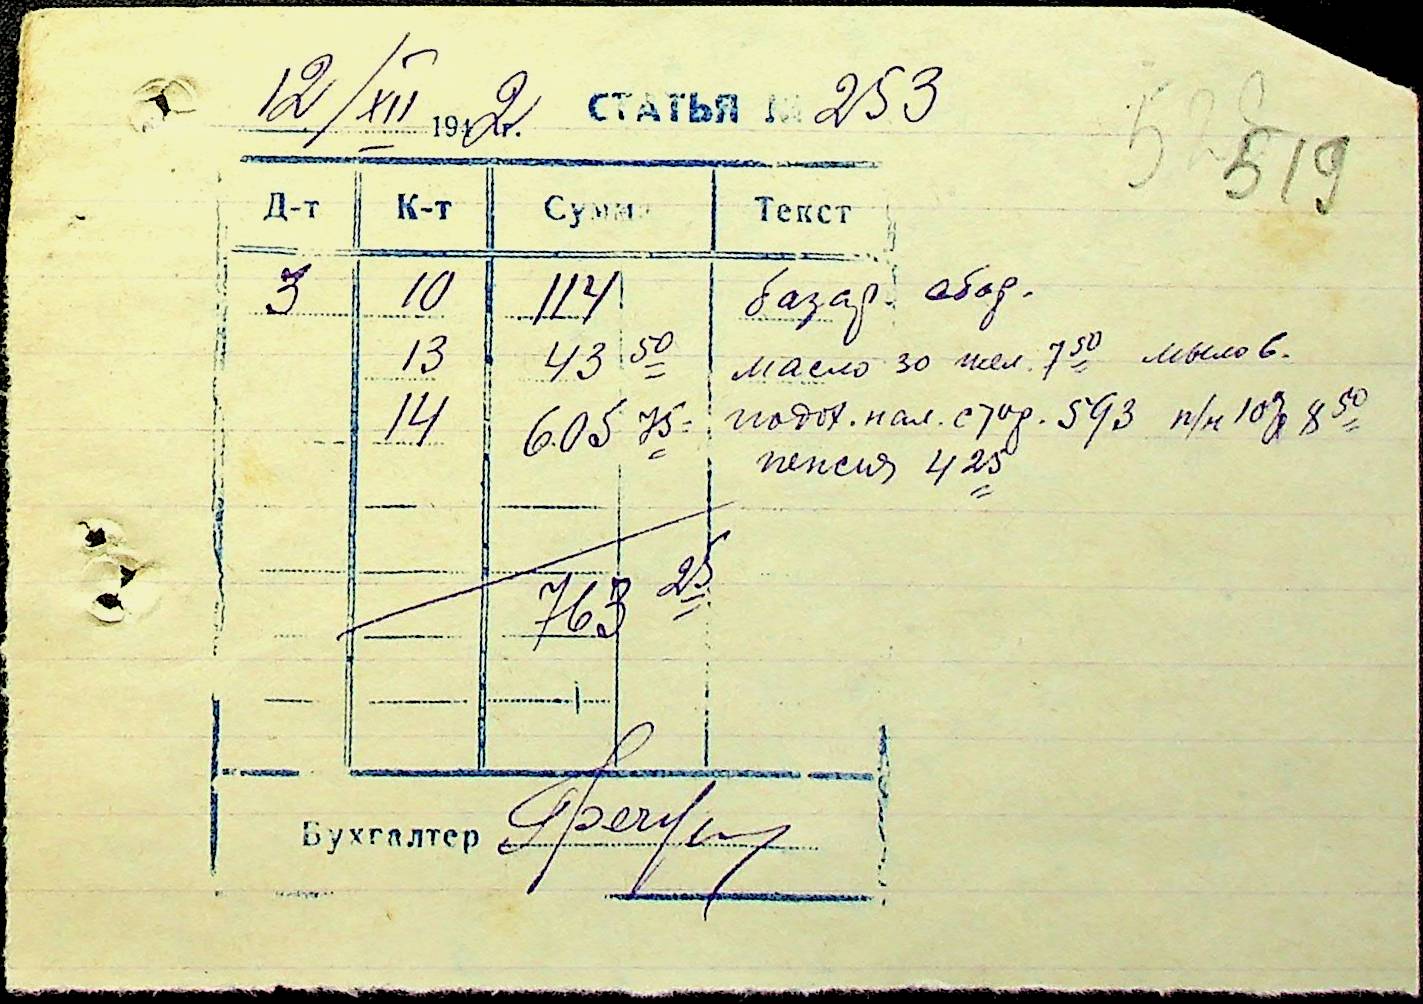 12/XII 1942 г. СТАТЬЯ № 253
529
519
Д-т К-т Сумма Текст
3 10 114 базар. сбор.
13 43 50 масло 30 жел. 7 50 мылов.
14 605 75 подох. нал. стор. 593 п/н 10% 8 50
пенсия 4 25
763 25
Бухгалтер